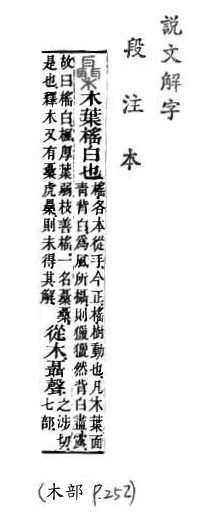 說文解字
段注本
欇 木葉榣白也
榣各本從手今正榣樹動也凡木葉面
青背白爲風所攝則獵獵然背白盡露
故曰榣白楓厚葉弱枝善榣一名欇欇
是也釋木又有欇虎櫐則未得其解
從木聶聲
之涉切
七部
(木部 P.252)